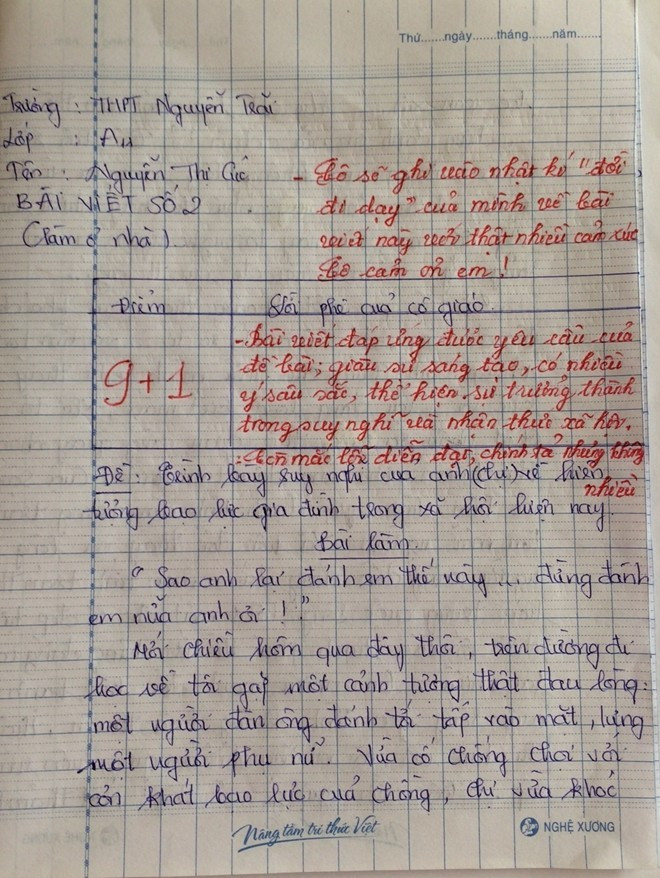 Thứ......ngày......tháng......năm......
Trường : THPT Nguyễn Trãi
Lớp : A11
Tên : Nguyễn Thị Cúc
- Cô sẽ ghi vào nhật kí "đời
BÀI VIẾT SỐ 2
đi dạy" của mình về bài
(Làm ở nhà).
viết này với thật nhiều cảm xúc
Cô cảm ơn em!
Điểm
Lời phê của cô giáo.
9+1
- Bài viết đáp ứng được yêu cầu của
đề bài; giàu sự sáng tạo, có nhiều
ý sâu sắc, thể hiện sự trưởng thành
trong suy nghĩ và nhận thức xã hội.
- Còn mắc lỗi diễn đạt, chính tả nhưng không
nhiều
Đề: Trình bày suy nghĩ của anh (chị) về hiện
tượng bạo lực gia đình trong xã hội hiện nay.
Bài làm.
" Sao anh lại đánh em thế này... đừng đánh
em nữa anh ơi ! "
Mới chiều hôm qua đây thôi, trên đường đi
học về tôi gặp một cảnh tượng thật đau lòng:
một người đàn ông đánh tới tấp vào mặt, lưng
một người phụ nữ. Vừa cố chống chọi với
cơn khát bạo lực của chồng, chị vừa khóc
Nâng tầm tri thức Việt
NGHỆ XƯƠNG